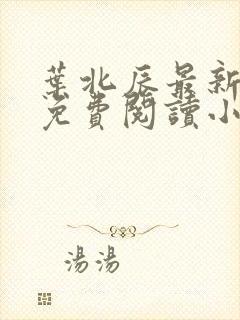 葉北辰最新
免費閱讀小
湯湯